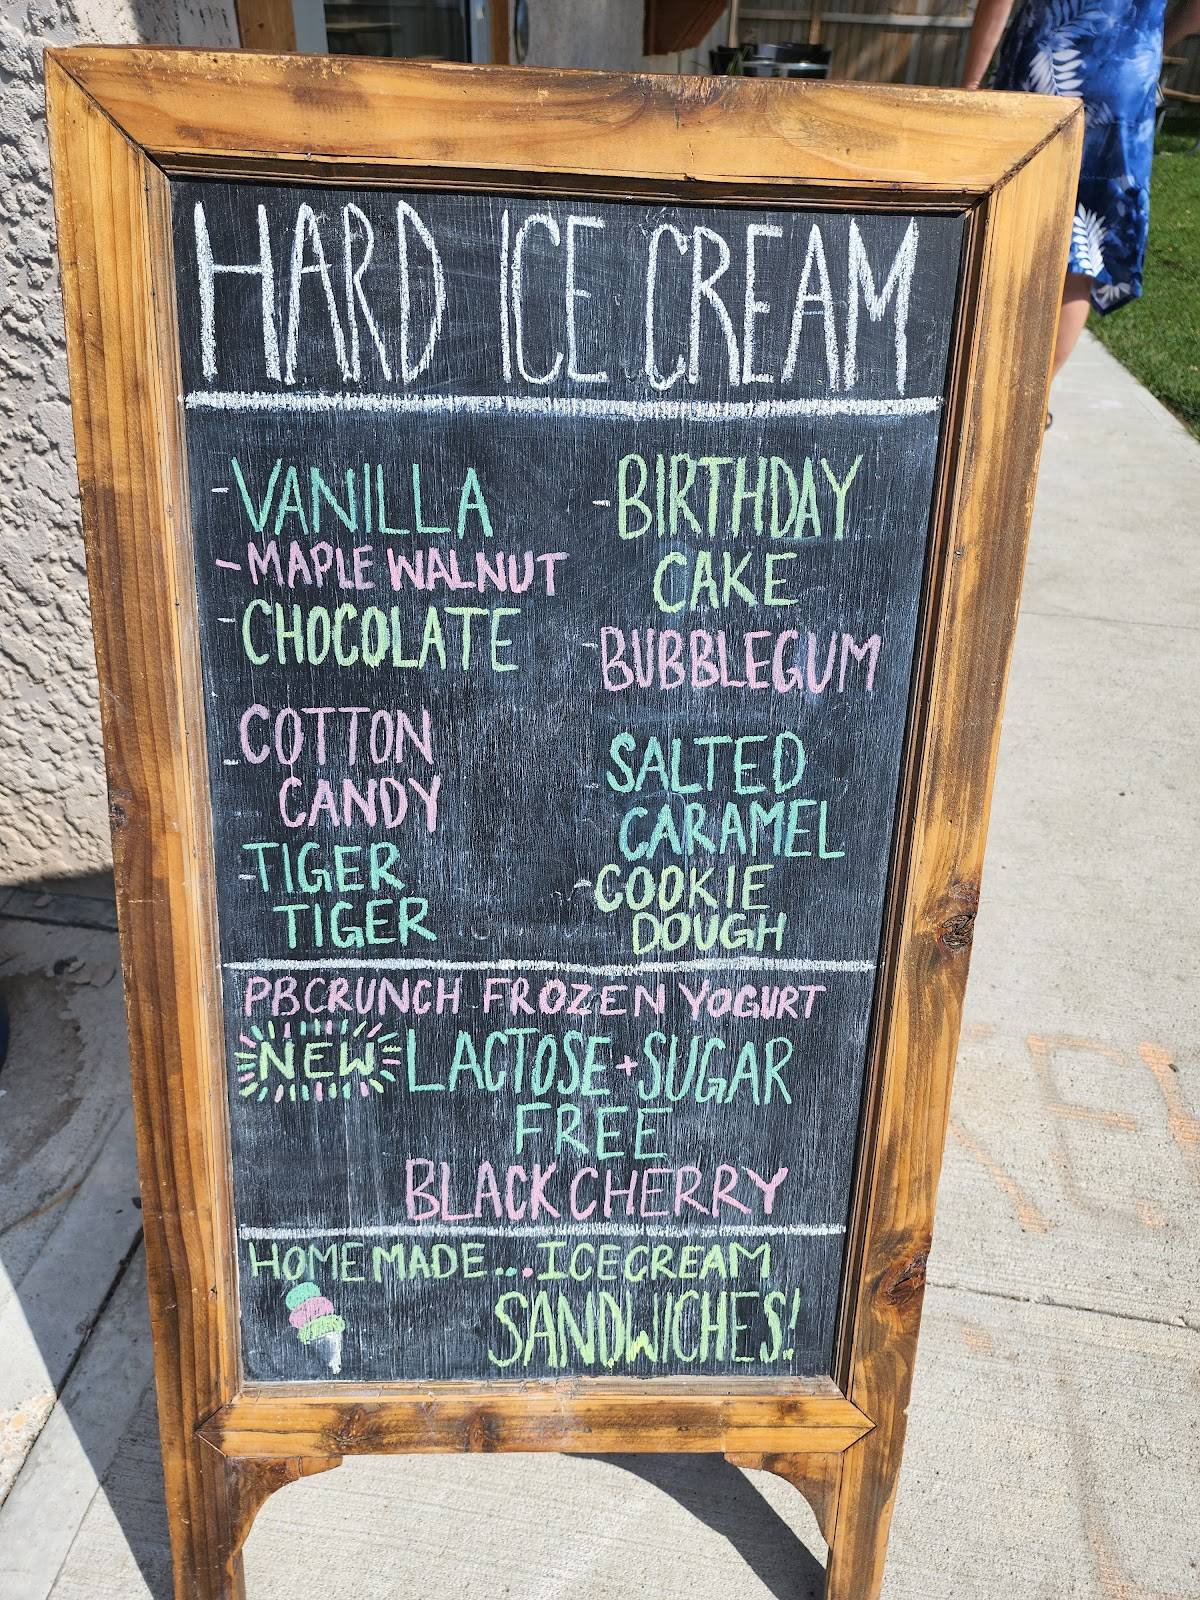 HARD ICE CREAM
-VANILLA
-MAPLE WALNUT
-CHOCOLATE
-COTTON
CANDY
-TIGER
TIGER
-BIRTHDAY
CAKE
-BUBBLEGUM
SALTED
CARAMEL
-COOKIE
DOUGH
PB CRUNCH FROZEN YOGURT
NEW LACTOSE + SUGAR
FREE
BLACK CHERRY
HOMEMADE... ICECREAM
SANDWICHES!